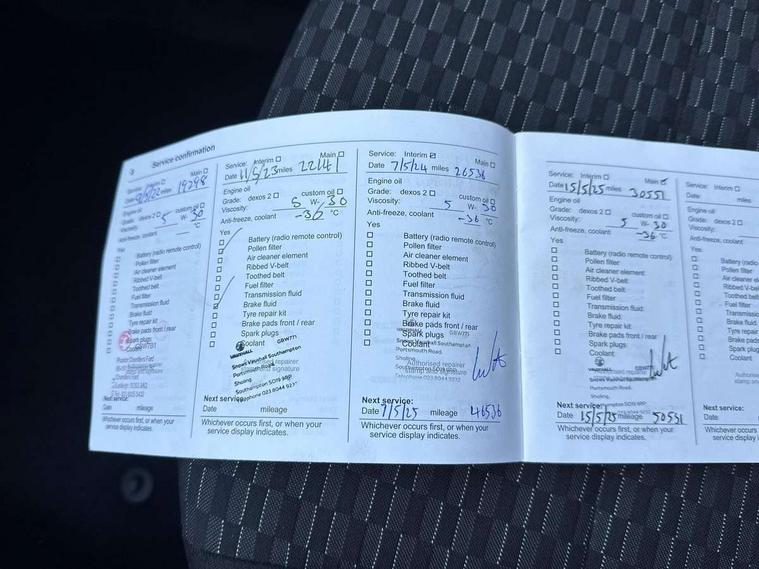 Service confirmation
Service: Interim Main
Date miles 19298
Engine oil
Grade: dexos 2 custom oil
Viscosity: 5 W- 30
Anti-freeze, coolant °C
Yes
Battery (radio remote control)
Pollen filter
Air cleaner element
Ribbed V-belt
Toothed belt
Fuel filter
Transmission fluid
Brake fluid
Tyre repair kit
Brake pads front / rear
Spark plugs
Next service:
Date mileage
Whichever occurs first, or when your
service display indicates.
Service: Interim Main
Date 11/5/23 miles 22141
Engine oil
Grade: dexos 2 custom oil
Viscosity: 5 W- 30
Anti-freeze, coolant °C
Yes
Battery (radio remote control)
Pollen filter
Air cleaner element
Ribbed V-belt
Toothed belt
Fuel filter
Transmission fluid
Brake fluid
Tyre repair kit
Brake pads front / rear
Spark plugs
Coolant
VAUXHALL GBW771
Snows Vauxhall Southampton
Portsmouth Road
Sholing
Southampton SO19 9RP
Telephone 023 8044
Next service:
Date mileage
Whichever occurs first, or when your
service display indicates.
Service: Interim Main
Date 7/5/24 miles 26536
Engine oil
Grade: dexos 2 custom oil
Viscosity: 5 W- 30
Anti-freeze, coolant -36 °C
Yes
Battery (radio remote control)
Pollen filter
Air cleaner element
Ribbed V-belt
Toothed belt
Fuel filter
Transmission fluid
Brake fluid
Tyre repair kit
Brake pads front / rear
Spark plugs GBW771
Coolant
Portsmouth Road
Sholing
Authorised repairer
stamp and signature
Next service:
Date 7/5/25 mileage 46536
Whichever occurs first, or when your
service display indicates.
Service: Interim Main
Date 15/5/25 miles 30551
Engine oil
Grade: dexos 2 custom oil
Viscosity: 5 W- 30
Anti-freeze, coolant -36 °C
Yes
Battery (radio remote control)
Pollen filter
Air cleaner element
Ribbed V-belt
Toothed belt
Fuel filter
Transmission fluid
Brake fluid
Tyre repair kit
Brake pads front / rear
Spark plugs
Coolant
VAUXHALL
Snows Vauxhall Southampton
Portsmouth Road
Sholing
Next service:
Date mileage 50551
Whichever occurs first, or when your
service display indicates.
Service: Interim
Date miles
Engine oil
Grade: dexos 2
Viscosity:
Anti-freeze, coolant
Yes
Battery
Pollen filter
Air cleaner
Ribbed V-belt
Toothed
Fuel filter
Brake fluid
Tyre repair
Brake pads
Spark plugs
Coolant
Next service:
Date
Whichever occurs
service display